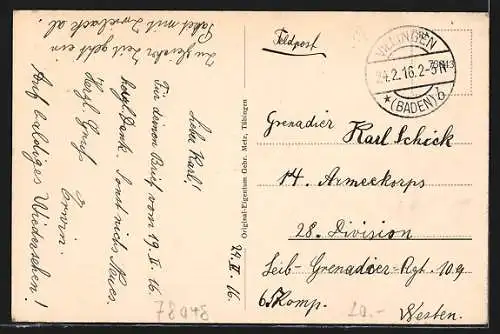 Zu gleicher Zeit geht ein
Paket mit Zwieback ab.
Feldpost
VILLINGEN
24.2.16.2-3N
★(BADEN)
Lieber Karl!
Für deinen Brief vom 19. II. 16
herzl. Dank. Sonst nichts Neues.
Herzl. Gruß
Erwin.
Auf baldiges Wiedersehen!
24. II. 16
Original-Eigentum Gebr. Metz, Tübingen
Grenadier
Karl Schick
14. Armeekorps
28. Division
Leib-Grenadier-Rgt. 109
6. Komp.
Westen.
78043
20.-